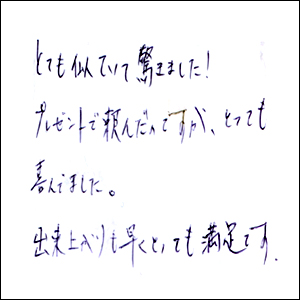 とても似ていて驚きました!
プレゼントで頼んだのですが、とっても
喜んでました。
出来上がりも早くとっても満足です.